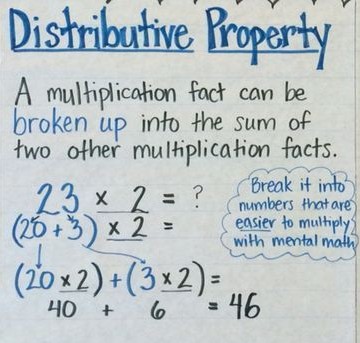 Distributive Property
A multiplication fact can be
broken up into the sum of
two other multiplication facts.
23 x 2 = ?
(20 + 3) x 2 =
Break it into
numbers that are
easier to multiply
with mental math
(20 x 2) + (3 x 2) =
40 + 6 = 46